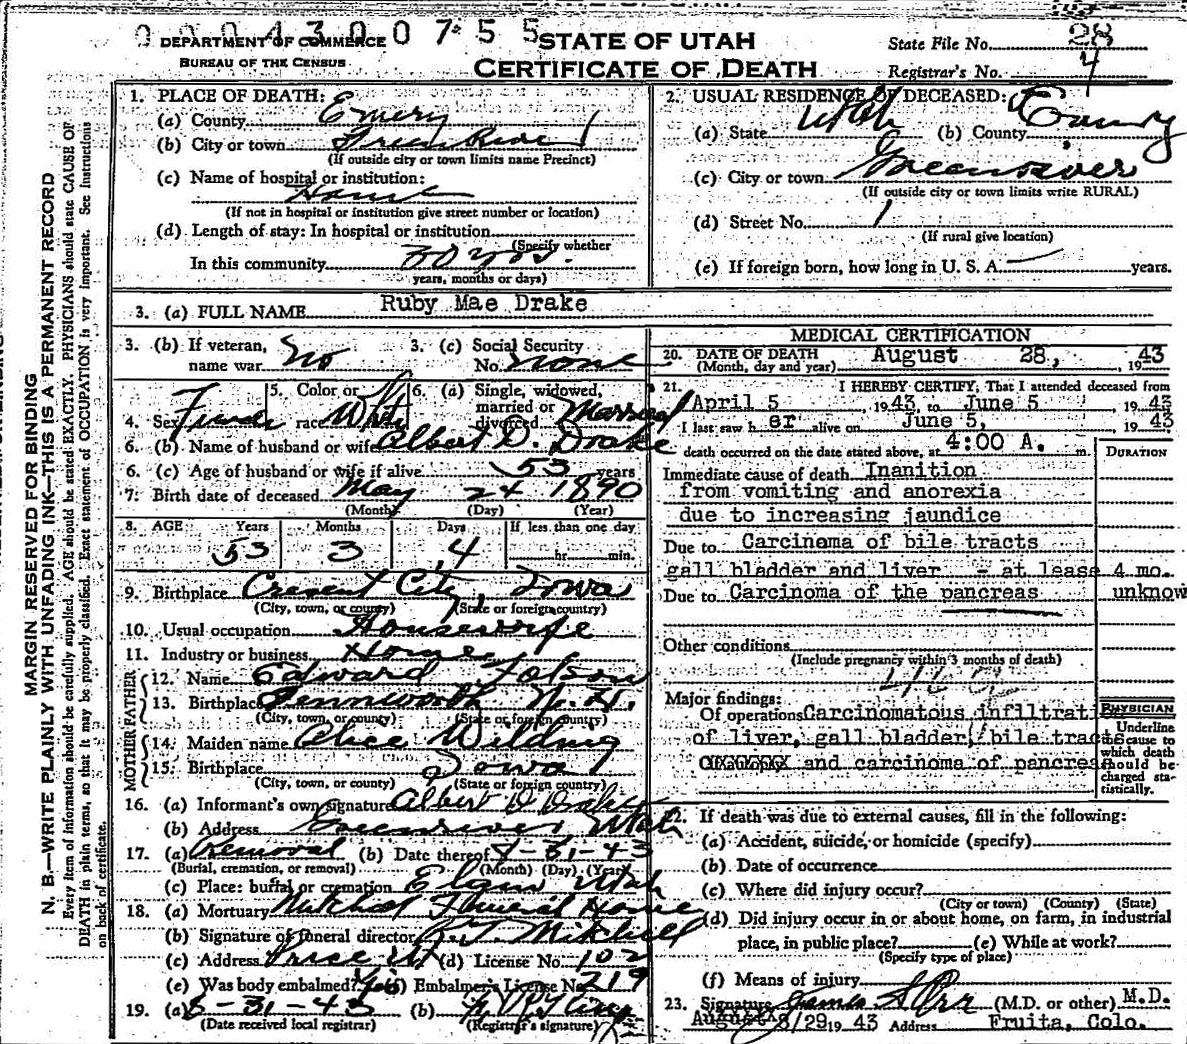 0 0 0 4 3 0 0 7 5 5
DEPARTMENT OF COMMERCE
BUREAU OF THE CENSUS
STATE OF UTAH
CERTIFICATE OF DEATH
State File No. 28
Registrar's No. 4
MARGIN RESERVED FOR BINDING
N. B.—WRITE PLAINLY WITH UNFADING INK—THIS IS A PERMANENT RECORD
Every item of information should be carefully supplied. AGE should be stated EXACTLY. PHYSICIANS should state CAUSE OF
DEATH in plain terms, so that it may be properly classified. Exact statement of OCCUPATION is very important. See Instructions
on back of certificate.
1. PLACE OF DEATH:
(a) County Emery
(b) City or town Green River
(If outside city or town limits name Precinct)
(c) Name of hospital or institution:
Home
(If not in hospital or institution give street number or location)
(d) Length of stay: In hospital or institution
(Specify whether
In this community 30 yrs.
years, months or days)
2. USUAL RESIDENCE OF DECEASED:
(a) State Utah (b) County Emery
(c) City or town Greenriver
(If outside city or town limits write RURAL)
(d) Street No. 1
(If rural give location)
(e) If foreign born, how long in U. S. A. — years.
3. (a) FULL NAME Ruby Mae Drake
3. (b) If veteran, name war No
3. (c) Social Security No. none
4. Sex Female
5. Color or race White
6. (a) Single, widowed, married or divorced Married
6. (b) Name of husband or wife Albert D. Drake
6. (c) Age of husband or wife if alive 53 years
7. Birth date of deceased May 24 1890
(Month) (Day) (Year)
8. AGE: Years Months Days If less than one day
53 3 4 hr. min.
9. Birthplace Cresent City, Iowa
(City, town, or county) (State or foreign country)
10. Usual occupation Housewife
11. Industry or business Home
FATHER
12. Name Edward Folsom
13. Birthplace N. H.
(City, town, or county) (State or foreign country)
MOTHER
14. Maiden name Alice Wilding
15. Birthplace Iowa
(City, town, or county) (State or foreign country)
16. (a) Informant's own signature Albert D Drake
(b) Address Greenriver Utah
17. (a) Removal (b) Date thereof 8-31-43
(Burial, cremation, or removal) (Month) (Day) (Year)
(c) Place: burial or cremation Elgin Utah
18. (a) Mortuary Mitchell Funeral Home
(b) Signature of funeral director Mitchell
(c) Address Price Ut (d) License No. 102
(e) Was body embalmed? Yes Embalmer's License No. 219
19. (a) 8-31-43 (b)
(Date received local registrar) (Registrar's signature)
MEDICAL CERTIFICATION
20. DATE OF DEATH August 28, 1943
(Month, day and year)
21. I HEREBY CERTIFY, That I attended deceased from
April 5, 1943, to June 5 1943
I last saw h er alive on June 5, 1943
death occurred on the date stated above, at 4:00 A. m.
DURATION
Immediate cause of death Inanition
from vomiting and anorexia
due to increasing jaundice
Due to Carcinoma of bile tracts
gall bladder and liver - at lease 4 mo.
Due to Carcinoma of the pancreas unknow
Other conditions
(Include pregnancy within 3 months of death)
Major findings:
Of operations Carcinomatous infiltratio
of liver, gall bladder, bile tracts
and carcinoma of pancreas
PHYSICIAN
Underline
the cause to
which death
should be
charged sta-
tistically.
22. If death was due to external causes, fill in the following:
(a) Accident, suicide, or homicide (specify)
(b) Date of occurrence
(c) Where did injury occur?
(City or town) (County) (State)
(d) Did injury occur in or about home, on farm, in industrial
place, in public place? (e) While at work?
(Specify type of place)
(f) Means of injury
23. Signature James S Orr (M.D. or other) M.D.
August 8/29 19 43 Address Fruita, Colo.